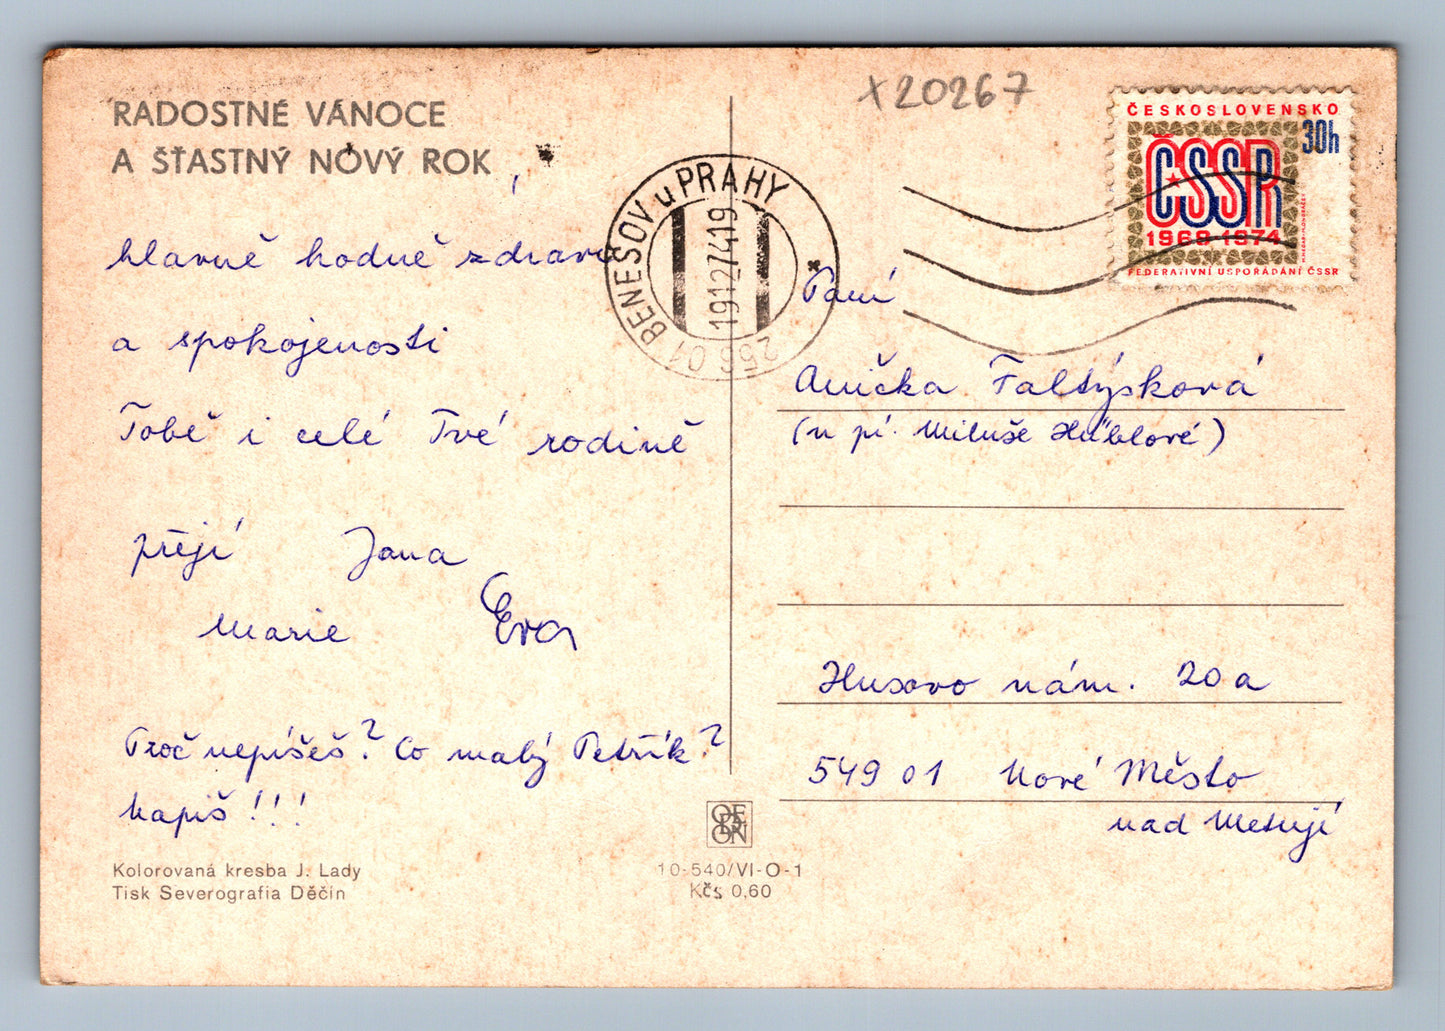 RADOSTNÉ VÁNOCE
A ŠŤASTNÝ NOVÝ ROK
hlavně hodně zdraví
a spokojenosti
Tobě i celé Tvé rodině
přejí Jana
Marie Eva
Proč nepíšeš? Co malý Petřík?
Napiš!!!
Kolorovaná kresba J. Lady
Tisk Severografia Děčín
ODEON
10-540/VI-O-1
Kčs 0,60
x20267
BENEŠOV u PRAHY
19127419
256 01
ČESKOSLOVENSKO
30h
ČSSR
1968-1974
FEDERATIVNÍ USPOŘÁDÁNÍ ČSSR
Paní
Anička Faltýsková
(u pí. Miluše Hüblové)
Husovo nám. 20a
549 01 Nové Město
nad Metují